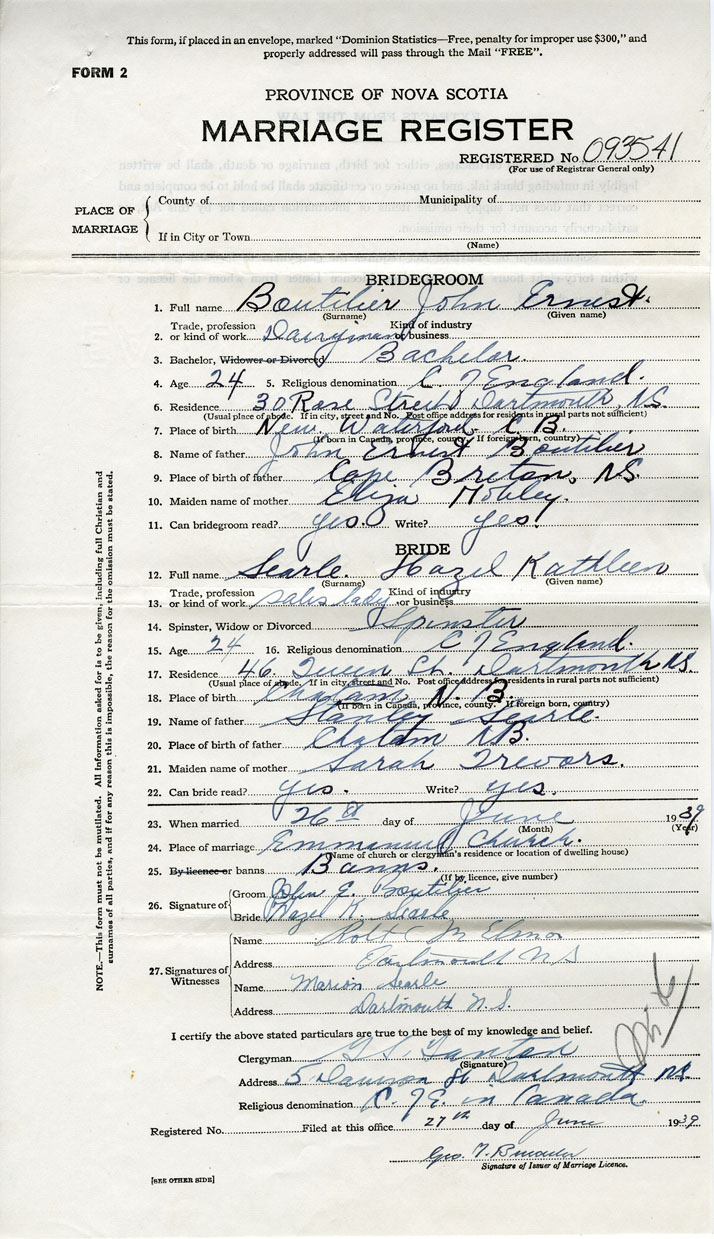 This form, if placed in an envelope, marked "Dominion Statistics—Free, penalty for improper use $300," and
properly addressed will pass through the Mail "FREE".
FORM 2
PROVINCE OF NOVA SCOTIA
MARRIAGE REGISTER
REGISTERED No. 093541
(For use of Registrar General only)
PLACE OF MARRIAGE
County of Municipality of
If in City or Town
(Name)
BRIDEGROOM
1. Full name Boutilier John Ernest.
(Surname) (Given name)
Trade, profession Kind of industry
2. or kind of work Dairyman or business
3. Bachelor, Widower or Divorced Bachelor.
4. Age 24 5. Religious denomination C. of England.
6. Residence 30 Rose Street Dartmouth, N.S.
(Usual place of abode. If in city, street and No. Post office address for residents in rural parts not sufficient)
7. Place of birth New Waterford C.B.
(If born in Canada, province, county. If foreign born, country)
8. Name of father John Ernest Boutilier
9. Place of birth of father Cape Breton, N.S.
10. Maiden name of mother Eliza
11. Can bridegroom read? yes. Write? yes.
BRIDE
12. Full name Searle. Hazel Kathleen
(Surname) (Given name)
Trade, profession Kind of industry
13. or kind of work sales lady or business
14. Spinster, Widow or Divorced Spinster
15. Age 24 16. Religious denomination C. of England.
17. Residence 46 Queen St. Dartmouth N.S.
(Usual place of abode. If in city, street and No. Post office address for residents in rural parts not sufficient)
18. Place of birth Chatam N.B.
(If born in Canada, province, county. If foreign born, country)
19. Name of father Stanley Searle.
20. Place of birth of father Chatam N.B.
21. Maiden name of mother Sarah Trevors.
22. Can bride read? yes. Write? yes.
23. When married 26 day of June 1939
(Month) (Year)
24. Place of marriage Emmanuel Church.
(Name of church or clergyman's residence or location of dwelling house)
25. By licence or banns Banns.
(If by licence, give number)
26. Signature of
Groom John E. Boutilier
Bride Hazel K. Searle
27. Signatures of Witnesses
Name
Address Dartmouth N S
Name Marion Searle
Address Dartmouth N.S.
I certify the above stated particulars are true to the best of my knowledge and belief.
Clergyman
(Signature)
Address 5 Dawson St Dartmouth N.S.
Religious denomination C. of E. in Canada.
Registered No. Filed at this office 27th day of June 1939
Geo. T.
Signature of Issuer of Marriage Licence.
[SEE OTHER SIDE]
NOTE.—This form must not be mutilated. All information asked for is to be given, including full Christian and
surnames of all parties, and if for any reason this is impossible, the reason for the omission must be stated.